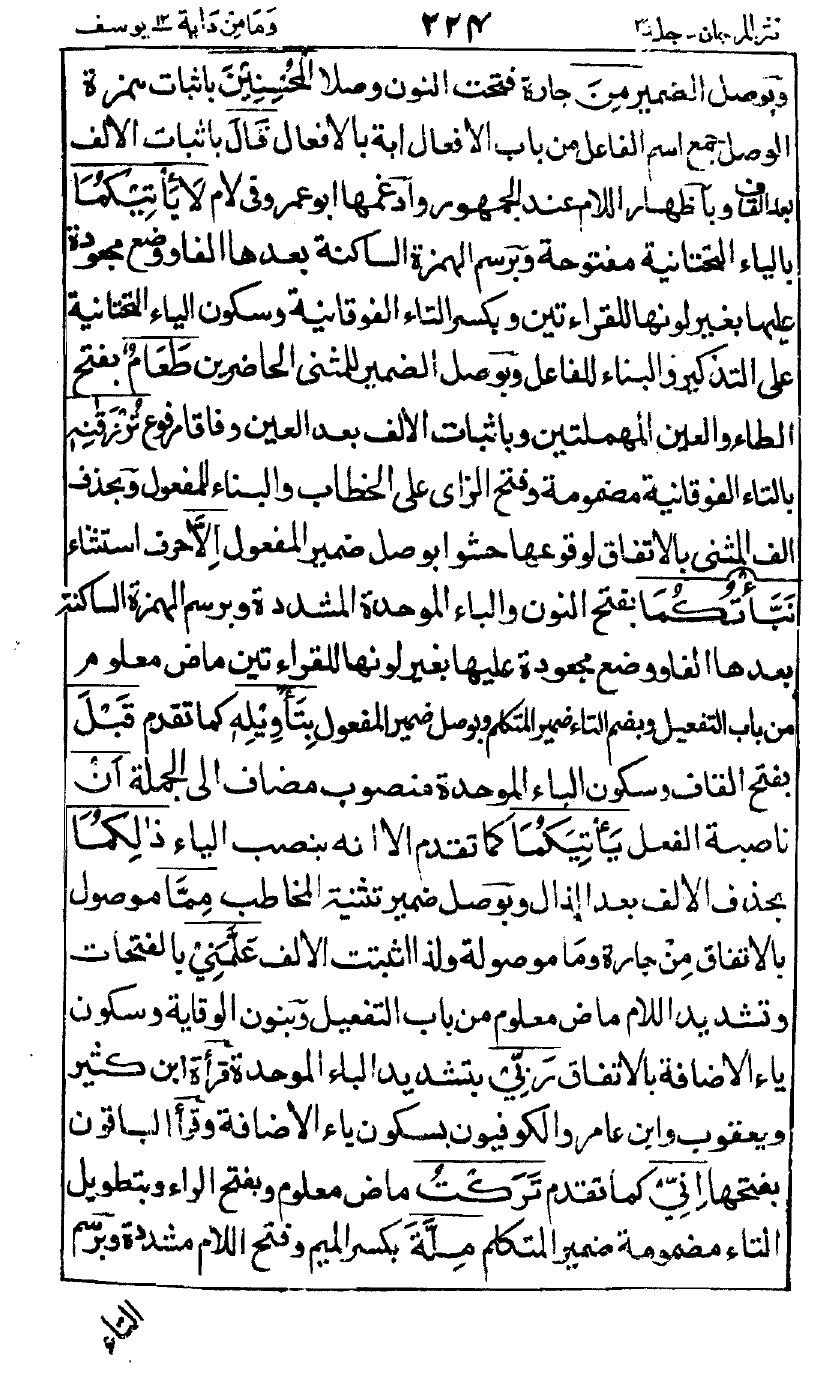 نثر المرجان - جلد ٣ ٢٢٤ وَمَا مِنْ دَابة ١٢ يوسف
وبوصل الضمير مِنَ جارة فتحت النون وصلا الْمُحْسِنِيْنَ باثبات همزة
الوصل جمع اسم الفاعل من باب الافعال ابة بالافعال قَالَ باثبات الالف
بعد القاف وبأظهار اللام عند الجمهور وأدغمها ابو عمرو فى لام لَا يَأْتِيْكُمَا
بالياء التحتانية مفتوحة وبرسم الهمزة الساكنة بعدها الفا ووضع مجعودة
عليها بغير لونها للقراءتين وبكسر التاء الفوقانية وسكون الياء التحتانية
على التذكير والبناء للفاعل وبوصل الضمير للمثنى الحاضرين طَعَامٌ بفتح
الطاء والعين المهملتين وباثبات الالف بعد العين وفاقا مرفوع تُرْزَقٰنِهٖ
بالتاء الفوقانية مضمومة وفتح الزاى على الخطاب والبناء للمفعول وبحذف
الف المثنى بالاتفاق لوقوعها حشوا بوصل ضمير المفعول اِلَّا حرف استثناء
نَبَّأْتُكُمَا بفتح النون والباء الموحدة المشددة وبرسم الهمزة الساكنة
بعدها الفا ووضع مجعودة عليها بغير لونها للقراءتين ماض معلوم
من باب التفعيل وبضم التاء ضمير المتكلم وبوصل ضمير المفعول بِتَأْوِيْلِهٖ كما تقدم قَبْلَ
بفتح القاف وسكون الباء الموحدة منصوب مضاف الى الجملة اَنْ
ناصبة الفعل يَأْتِيَكُمَا كما تقدم الا انه بنصب الياء ذٰلِكُمَا
بحذف الالف بعد الذال وبوصل ضمير تثنية المخاطب مِمَّا موصول
بالاتفاق مِنْ جارة ومَا موصولة ولذا اثبتت الالف عَلَّمَنِيْ بالفتحات
وتشديد اللام ماض معلوم من باب التفعيل وبنون الوقاية وسكون
ياء الاضافة بالاتفاق رَبِّيْ بتشديد الباء الموحدة قرأة ابن كثير
ويعقوب وابن عامر والكوفيون بسكون ياء الاضافة وقرأ الباقون
بفتحها اِنِّيْ كما تقدم تَرَكْتُ ماض معلوم وبفتح الراء وبتطويل
التاء مضمومة ضمير المتكلم مِلَّةَ بكسر الميم وفتح اللام مشددة وبرسم
التاء